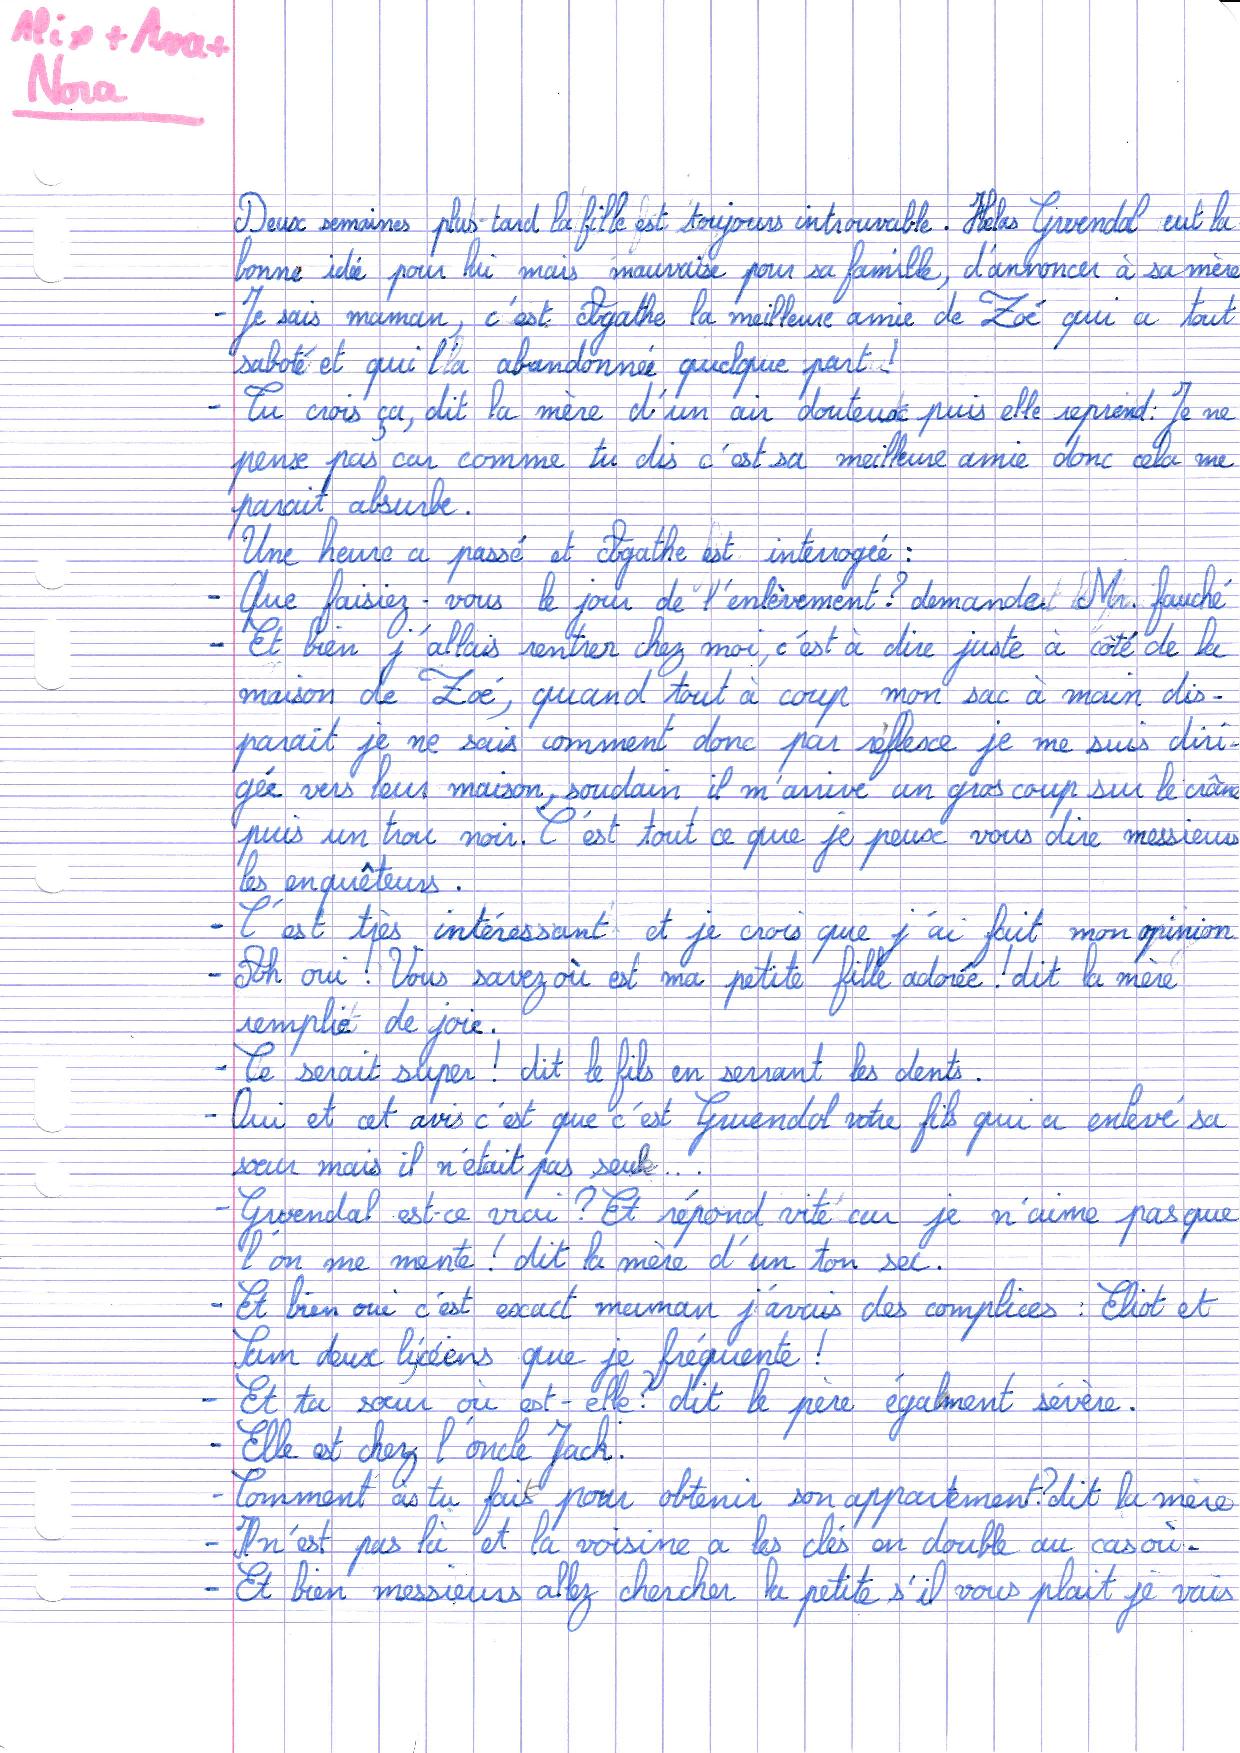 Alix + Anna +
Nora
Deux semaines plus tard la fille est toujours introuvable. Hélas Gwendal eut la
bonne idée pour lui mais mauvaise pour sa famille, d'annoncer à sa mère
- Je sais maman, c'est Agathe la meilleure amie de Zoé qui a tout
saboté et qui l'a abandonnée quelque part !
- Tu crois ça, dit la mère d'un air douteux puis elle reprend : Je ne
pense pas car comme tu dis c'est sa meilleure amie donc cela me
parait absurbe.
Une heure a passé et Agathe est interrogée :
- Que faisiez-vous le jour de l'enlèvement ? demande Mr. fauché
- Et bien j'allais rentrer chez moi, c'est à dire juste à côté de la
maison de Zoé, quand tout à coup mon sac à main dis-
parait je ne sais comment donc par réflexe je me suis diri-
gée vers leur maison, soudain il m'arrive un gros coup sur le crâne
puis un trou noir. C'est tout ce que je peux vous dire messieurs
les enquêteurs.
- C'est très intéressant et je crois que j'ai fait mon opinion
- Ah oui ! Vous savez où est ma petite fille adorée ! dit la mère
remplie de joie.
- Ce serait super ! dit le fils en serrant les dents.
- Oui et cet avis c'est que c'est Gwendal votre fils qui a enlevé sa
sœur mais il n'était pas seul...
- Gwendal est-ce vrai ? Et répond vite car je n'aime pas que
l'on me mente ! dit la mère d'un ton sec.
- Et bien oui c'est exact maman j'avais des complices : Eliot et
Sam deux licéens que je fréquente !
- Et ta sœur où est-elle ? dit le père également sévère.
- Elle est chez l'oncle Jack.
- Comment as tu fait pour obtenir son appartement ? dit la mère
- Il n'est pas là et la voisine a les clés en double au cas où.
- Et bien messieurs allez chercher la petite s'il vous plait je vais